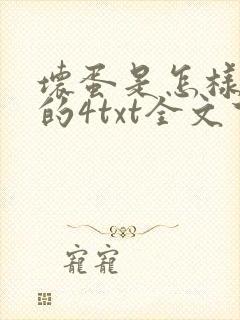 壞蛋是怎樣
的4txt全文
寵寵